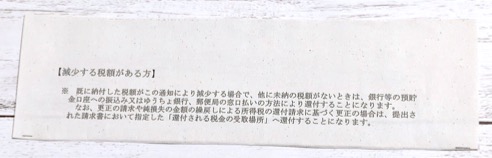 【減少する税額がある方】
※ 既に納付した税額がこの通知により減少する場合で、他に未納の税額がないときは、銀行等の預貯
金口座への振込み又はゆうちょ銀行、郵便局の窓口払いの方法により還付することになります。
なお、更正の請求や純損失の金額の繰戻しによる所得税の還付請求に基づく更正の場合は、提出さ
れた請求書において指定した「還付される税金の受取場所」へ還付することになります。